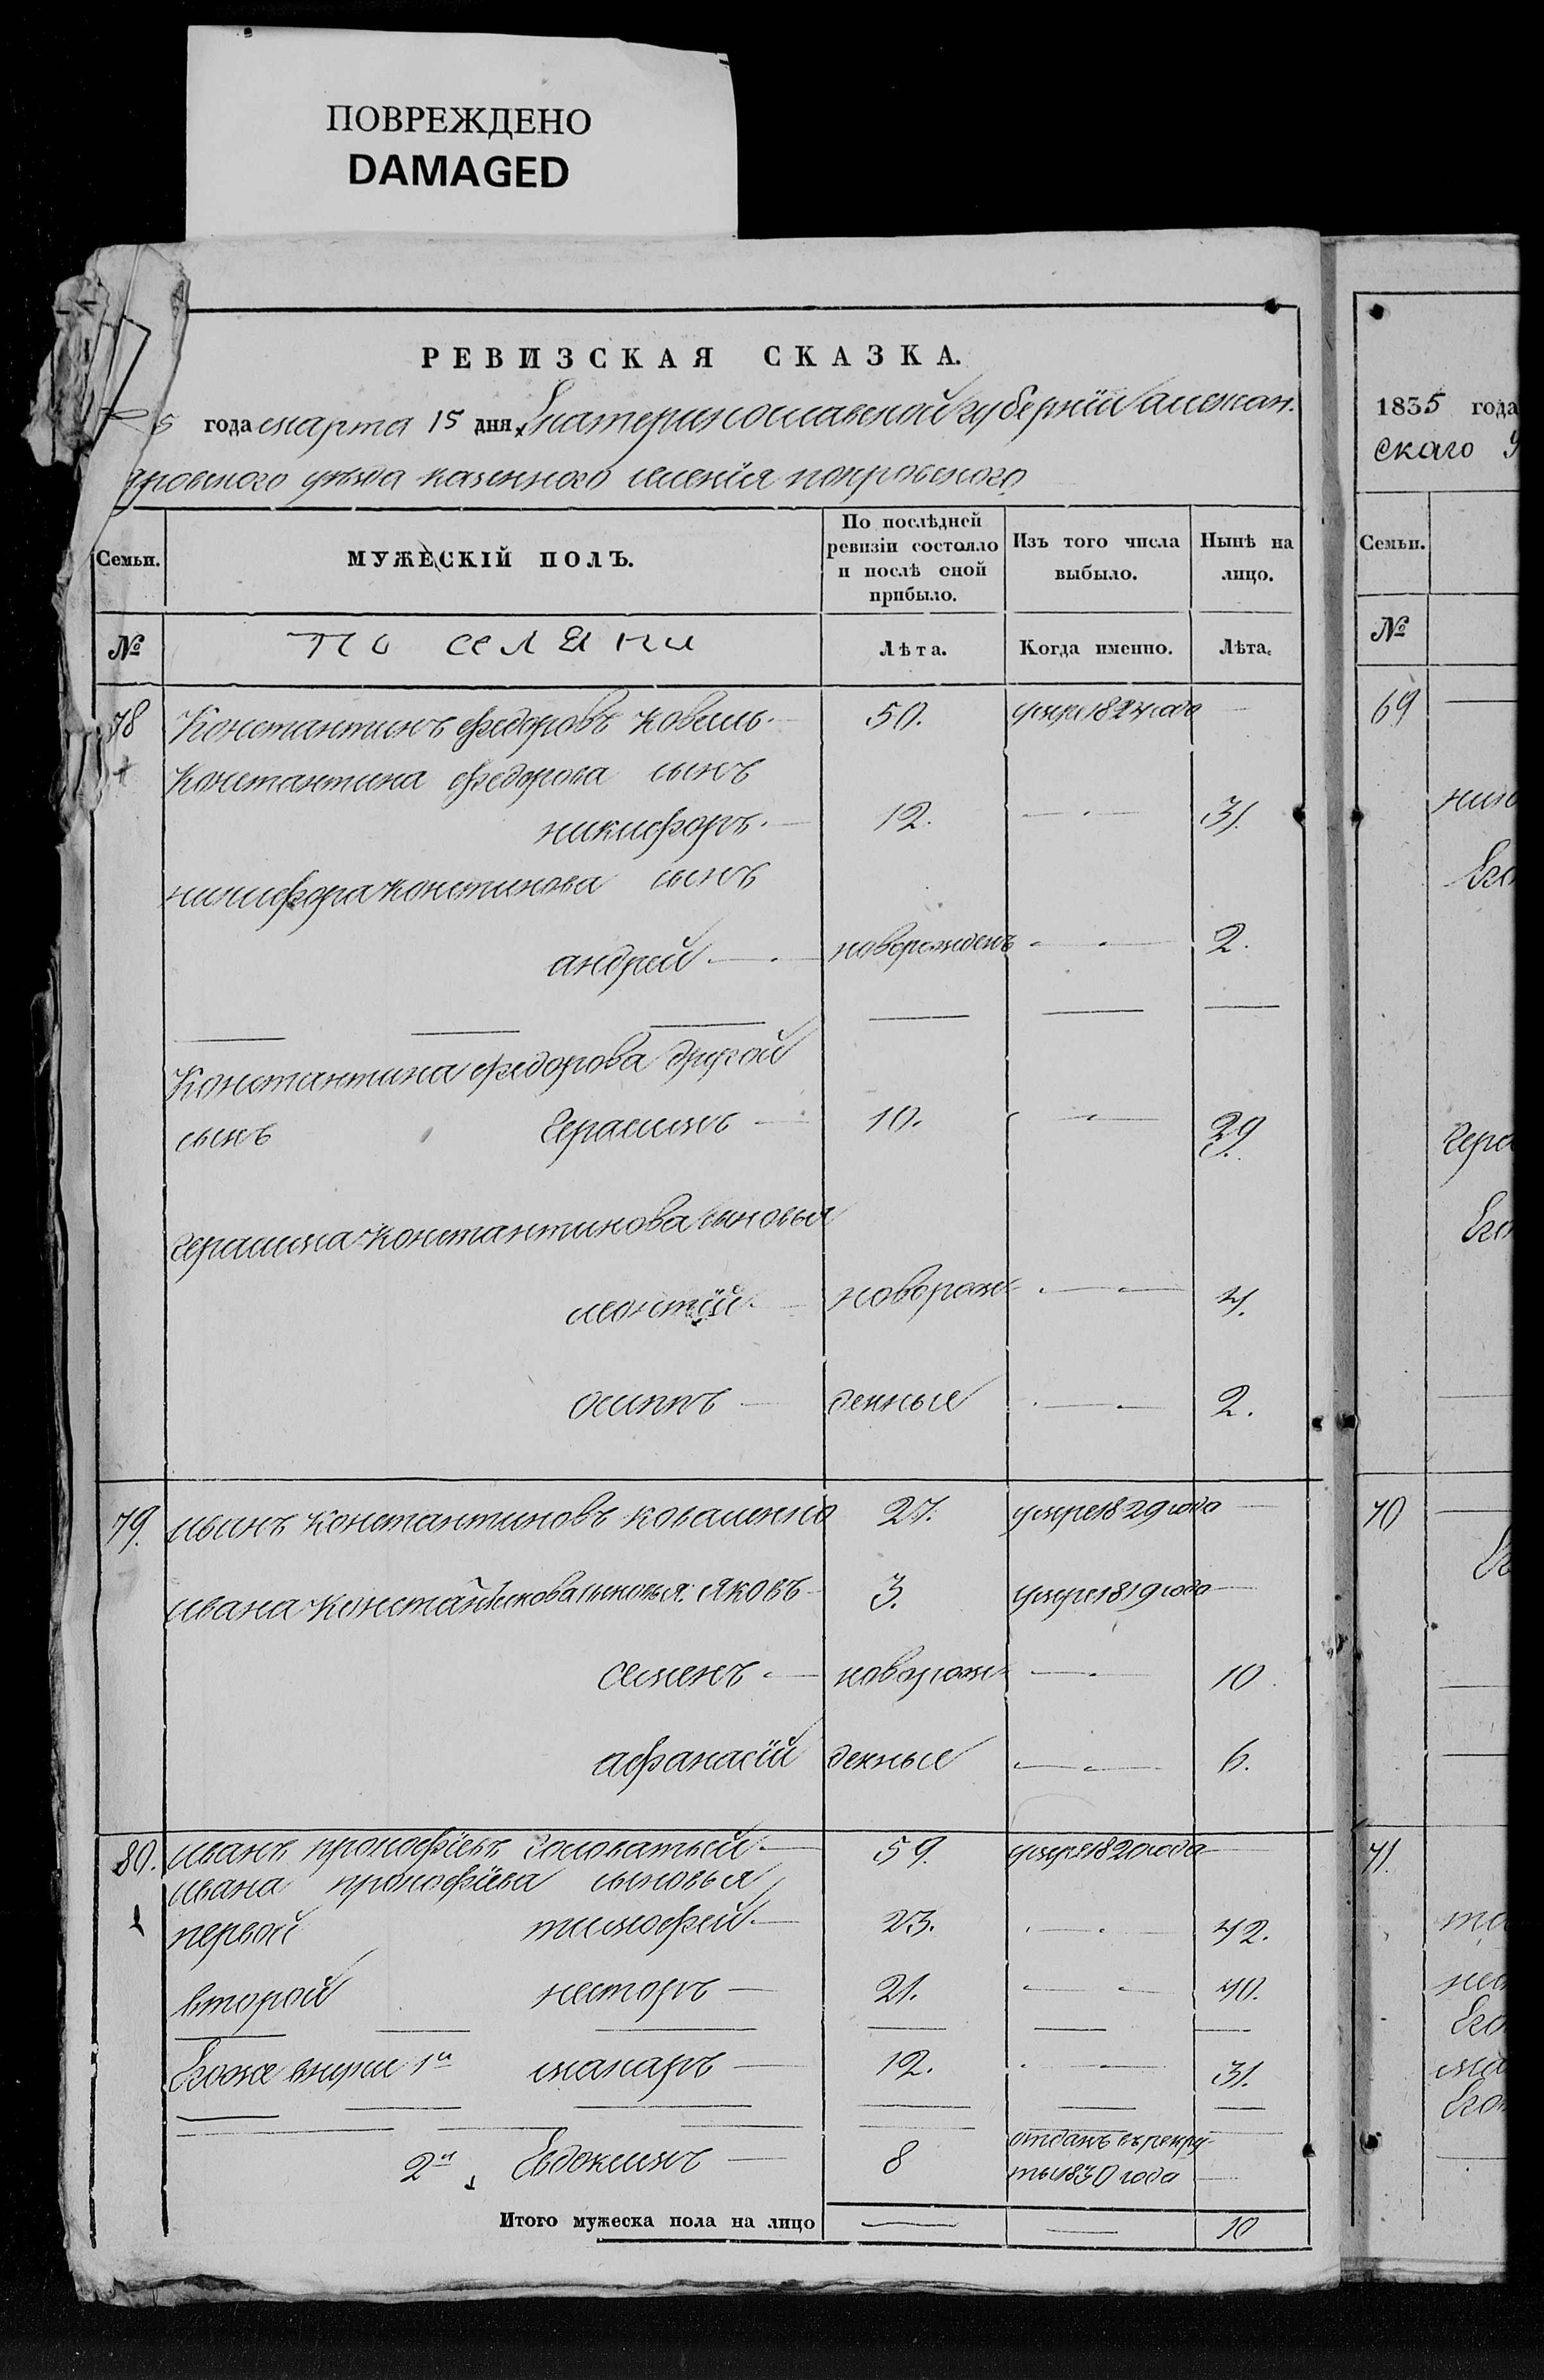 ПОВРЕЖДЕНО
DAMAGED
РЕВИЗСКАЯ СКАЗКА.
5 года марта 15 дня Екатеринославской губернїи алексан.
дровского уѣзда казенного селенїя покровского
Семьи. МУЖЕСКІЙ ПОЛЪ. По послѣдней ревизіи состояло и послѣ оной прибыло. Изъ того числа выбыло. Нынѣ на лицо.
№ поселяни Лѣта. Когда именно. Лѣта.
78 Константинъ федоровъ коваль. 50. умре 1824 года
Константина федорова сынъ
никифоръ. 12. 31.
никифора констинова сынъ
андрей новорожденъ 2.
Константина федорова другой
сынъ Герасимъ 10. 29.
Герасима константинова сыновья
леонтїй новорож 4.
осипъ денные 2.
79. иванъ константиновъ коваленко 27. умре 1829 года
ивана константинова сыновья: яковъ 3. умре 1819 года
семенъ новорож 10
афанасїй денные 6.
80. иванъ прокофїевъ головатый 59. умре 1820 года
ивана прокофїева сыновья
первой тимофей 23. 42.
второй несторъ 21. 40.
Егоже внуки 1й макаръ 12. 31.
2й Евдокимъ 8 отданъ в рекру-
ты 1830 года
Итого мужеска пола на лицо 10
1835 года
скаго у
Семьи.
№
69
ник
Его
гера
Его
70
Ег
71.
нес
Его
мак
Его